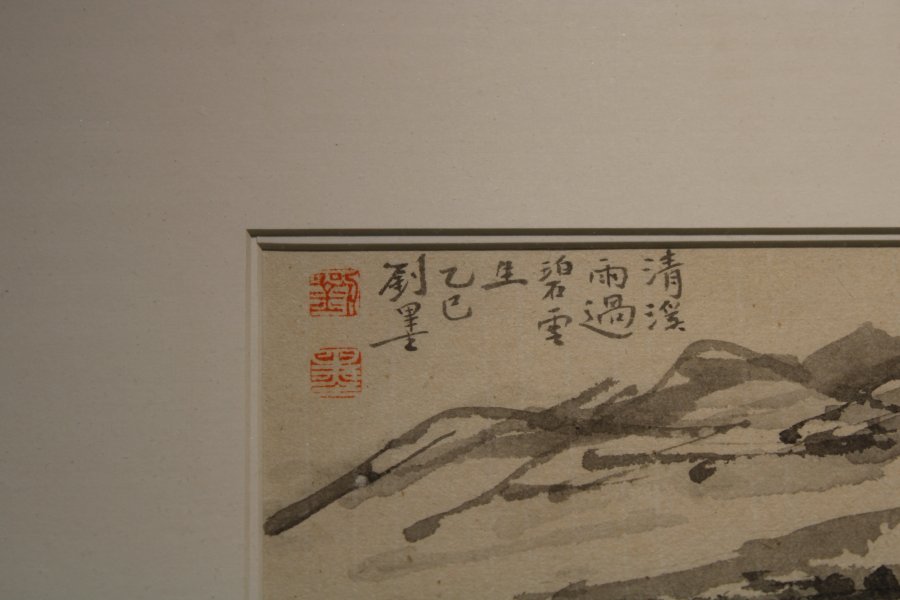 清溪
雨過
碧雲
生
乙巳
劉墨
劉
墨